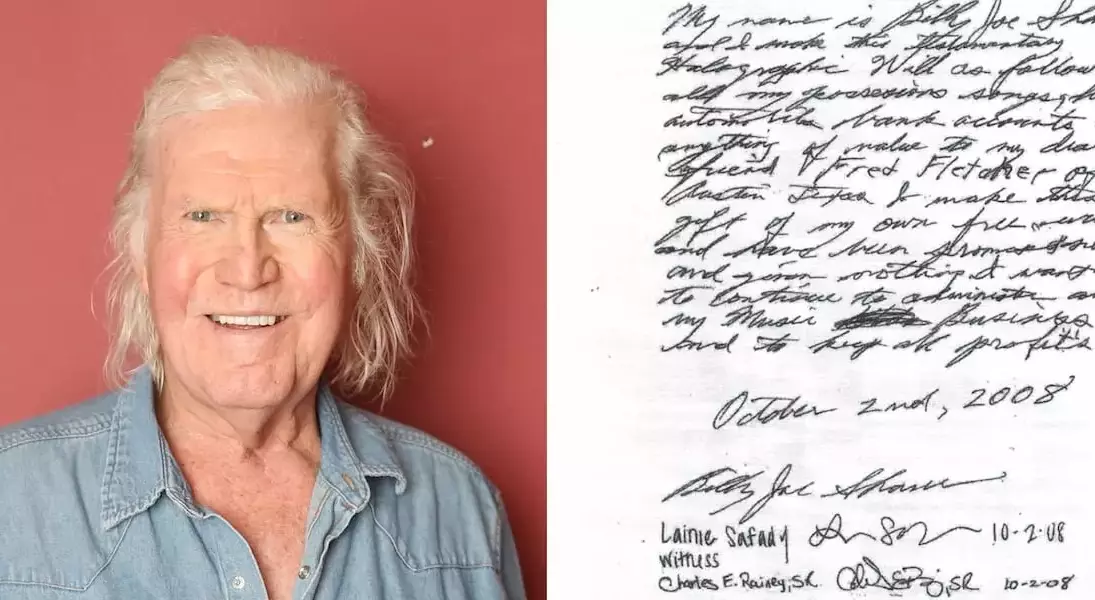 My name is Billy Joe Sha
and I make this Testamentary
Holographic Will as follow
all my possesions songs, h
automobile bank accounts
anything of value to my dea
friend Fred Fletcher of
Austin Texas I make this
gift of my own free
and have been
and given nothing I want
to continue to administer an
my Music Business
and to keep all profits
October 2nd, 2008
Billy Joe Shaver
Lainie Safady 10-2-08
Witness
Charles E. Rainey, SR. SR 10-2-08